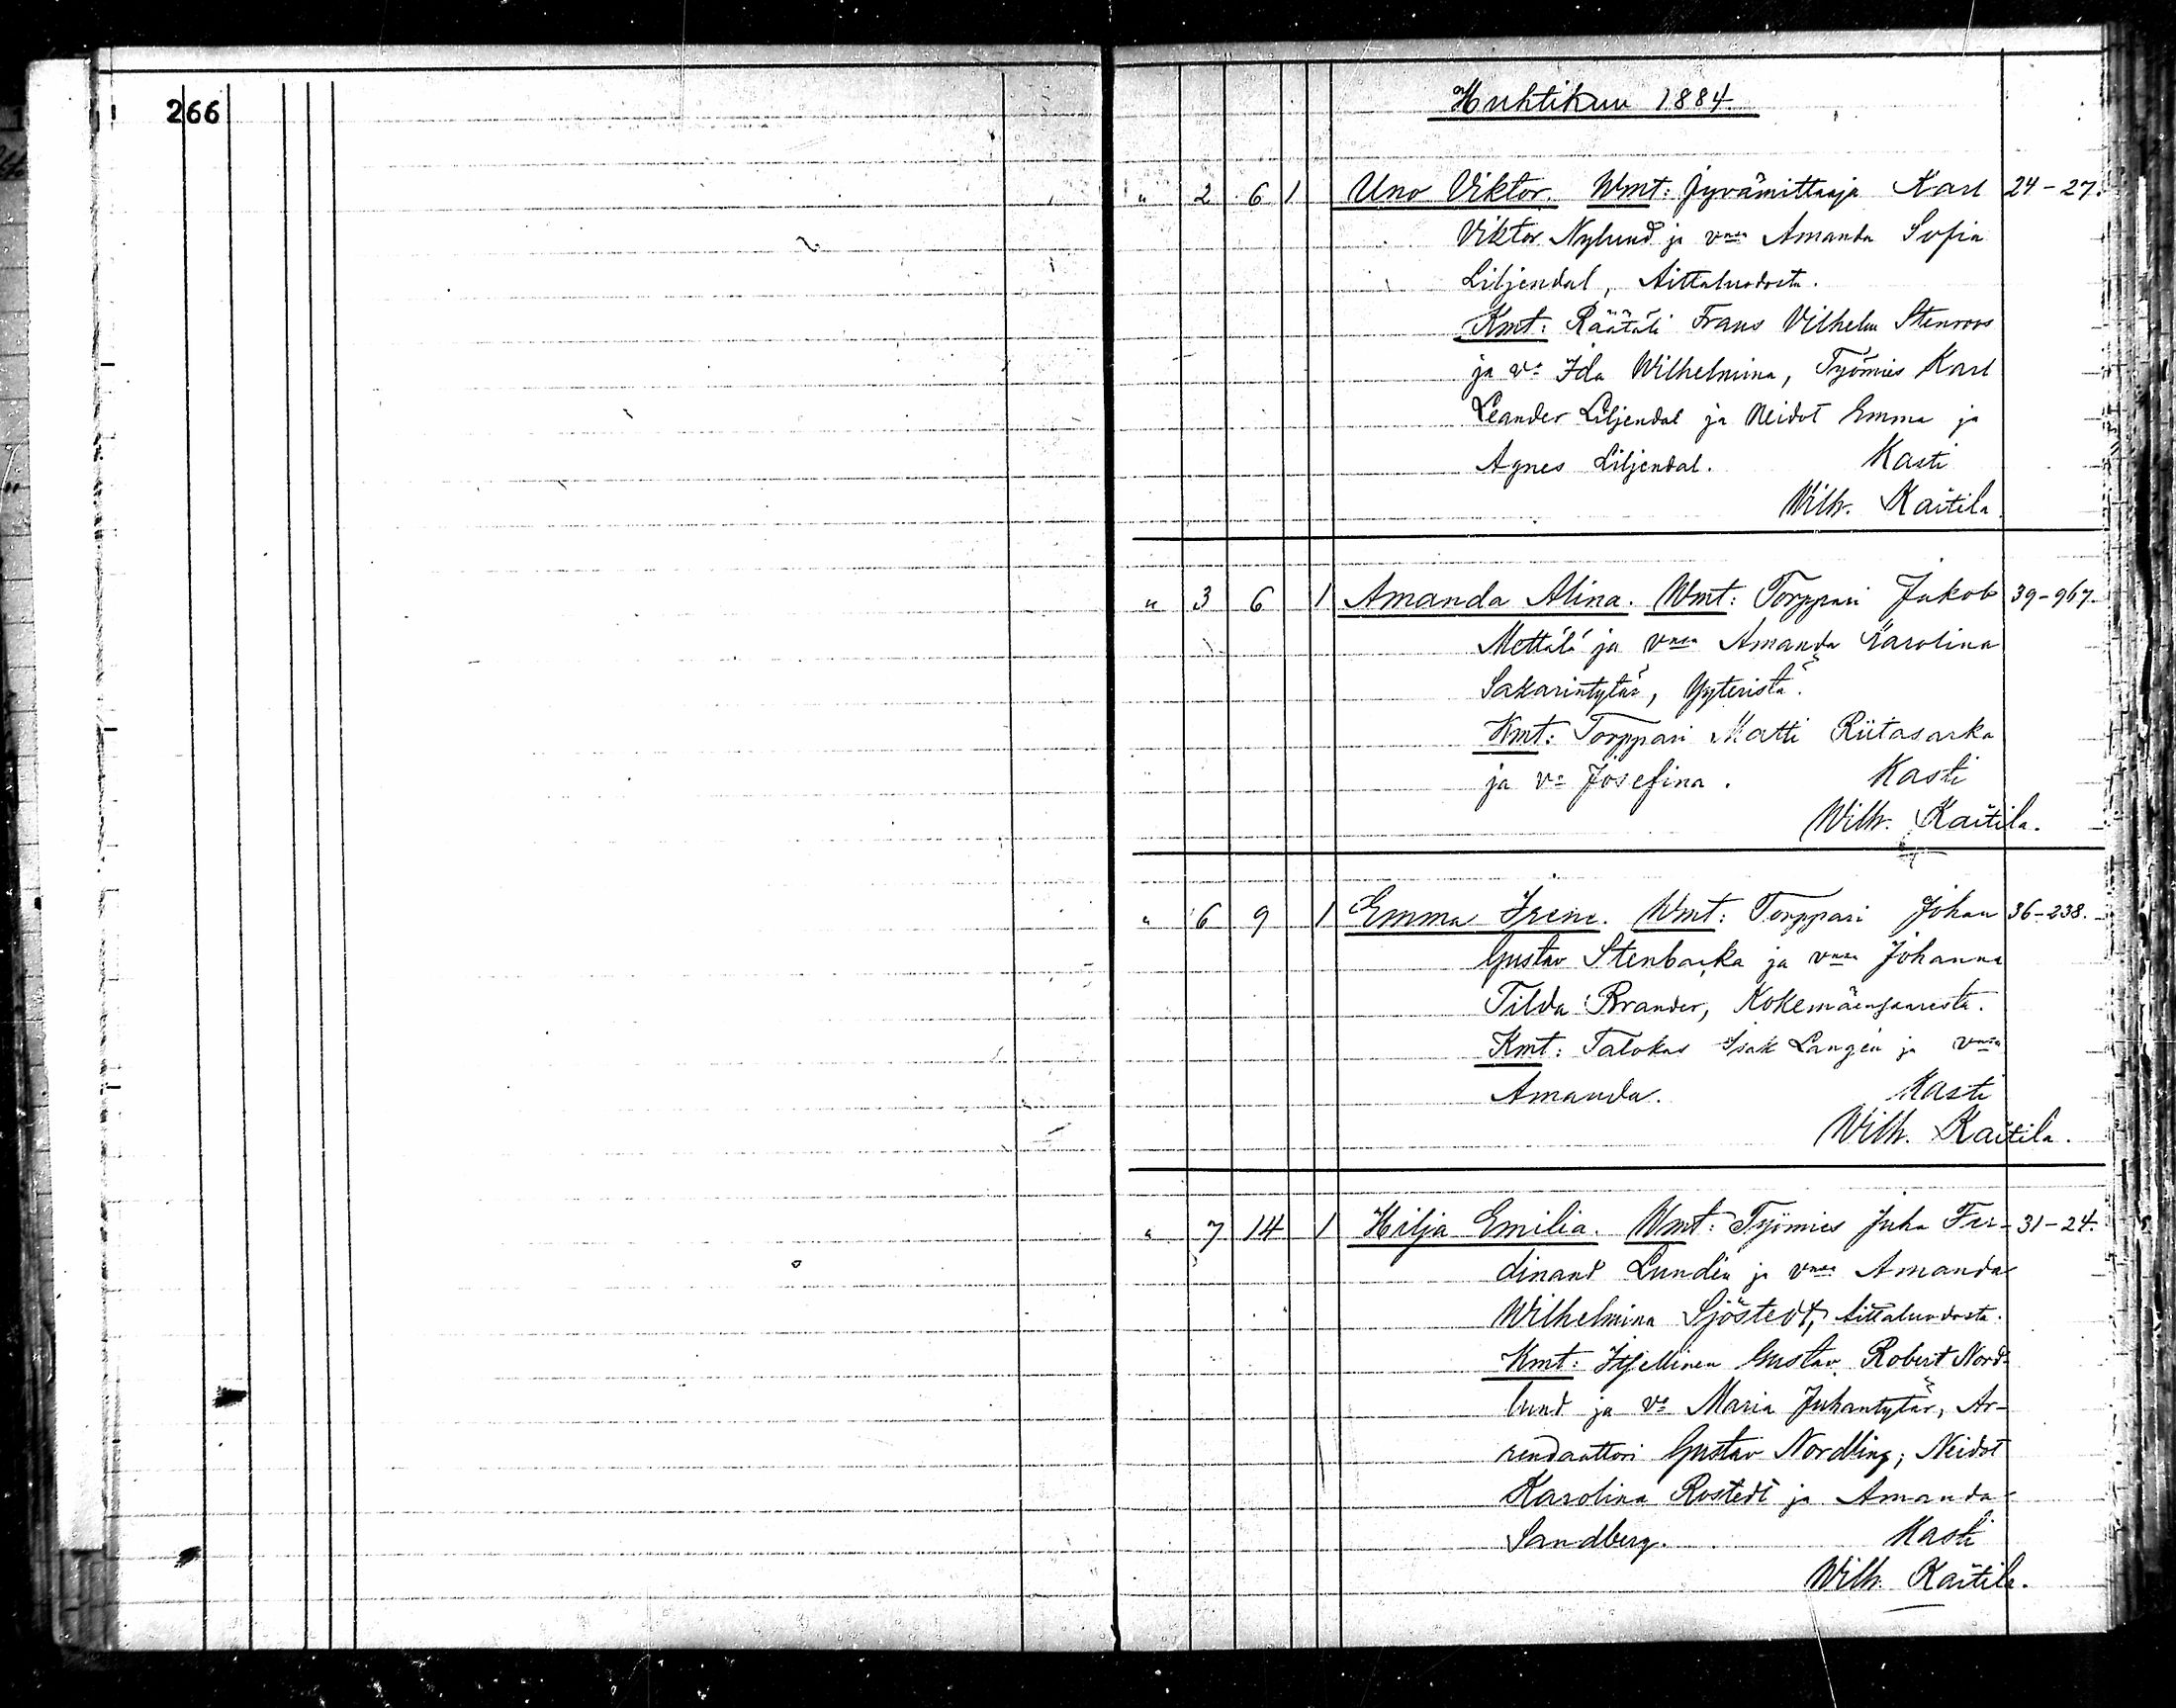 266
Huhtikuu 1884.
" 2 6 1 Uno Viktor. Wmt: Jyvämittaaja Karl 24-27.
Viktor Nylund ja vnsa Amanda Sofia
Liljendal, Aittaluodosta.
Kmt: Räätäli Frans Vilhelm Stenroos
ja va Ida Wilhelmina, Työmies Karl
Leander Liljendal ja Neidot Emma ja
Agnes Liljendal. Kasti
Wilh. Kaitila
" 3 6 1 Amanda Alina. Wmt: Torppari Jakob 39-967.
Mettälä ja vnsa Amanda Karolina
Sakarintytär, Yyteristä.
Kmt: Torppari Matti Riitasarka
ja va Josefina. Kasti
Wilh. Kaitila.
" 6 9 1 Emma Irene. Wmt: Torppari Johan 36-238.
Gustav Stenbacka ja vnsa Johanna
Tilda Brander, Kokemäensaaresta.
Kmt: Talokas Isak Langén ja vnsa
Amanda. Kasti
Wilh. Kaitila.
" 7 14 1 Hilja Emilia. Wmt: Työmies Juha Fer- 31-24.
dinand Lundén ja vnsa Amanda
Wilhelmina Sjöstedt, Aittaluodosta.
Kmt: Itsellinen Gustav Robert Nord-
lund ja va Maria Juhantytär, Ar-
rendaattori Gustav Nordling; Neidot
Karolina Rostedt ja Amanda
Sandberg. Kasti
Wilh. Kaitila.